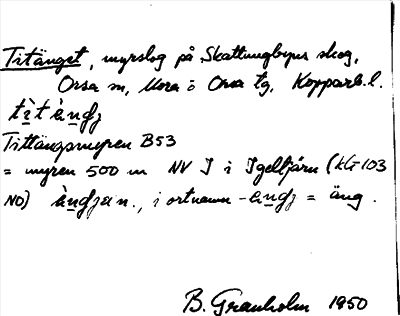 Titänget, myrslog på Skattungbyns skog,
Orsa sn, Mora o Orsa tg, Kopparb.l.
tìt àngj
Tittängsmyren B53
= myren 500 m NV J i Igelltjärn (kG 103
NO) àngjan., i ortnamn -angj = äng.
B. Granholm 1950